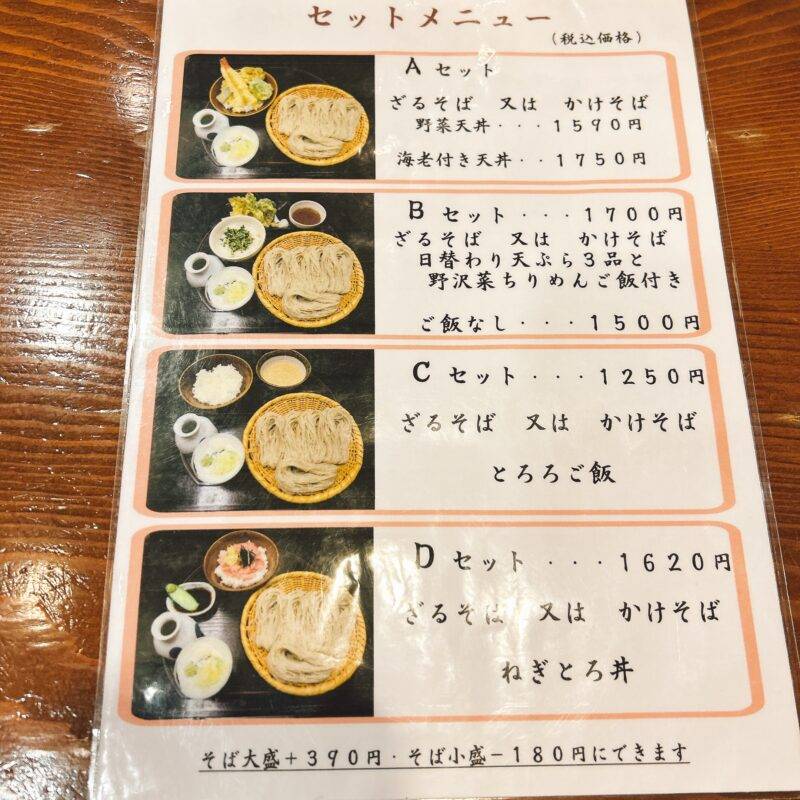 セットメニュー
（税込価格）
A セット
ざるそば 又は かけそば
野菜天丼・・・１５９０円
海老付き天丼・・１７５０円
B セット・・・１７００円
ざるそば 又は かけそば
日替わり天ぷら３品と
野沢菜ちりめんご飯付き
ご飯なし・・・１５００円
C セット・・・１２５０円
ざるそば 又は かけそば
とろろご飯
D セット・・・１６２０円
ざるそば 又は かけそば
ねぎとろ丼
そば大盛＋３９０円・そば小盛－１８０円にできます